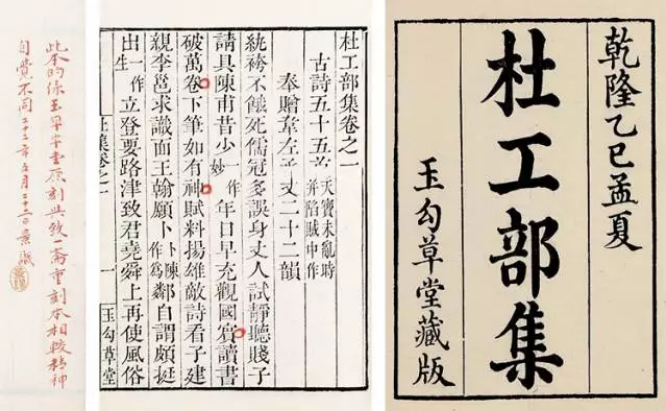 乾隆乙巳孟夏
杜工部集
玉勾草堂藏版
杜工部集卷之一
古詩五十五首
天寶未亂時
并陷賊中作
奉贈韋左丞丈二十二韻
紈袴不餓死儒冠多誤身丈人試靜聽賤子
請具陳甫昔少一作妙年日早充觀國賓讀書
破萬卷下筆如有神賦料揚雄敵詩看子建
親李邕求識面王翰願卜陳作為鄰自謂頗挺
出一作生立登要路津致君堯舜上再使風俗
杜集卷之一
一
玉勾草堂
此本的係玉勾草堂原刻與致一齋重刻本相較精神
自覺不同